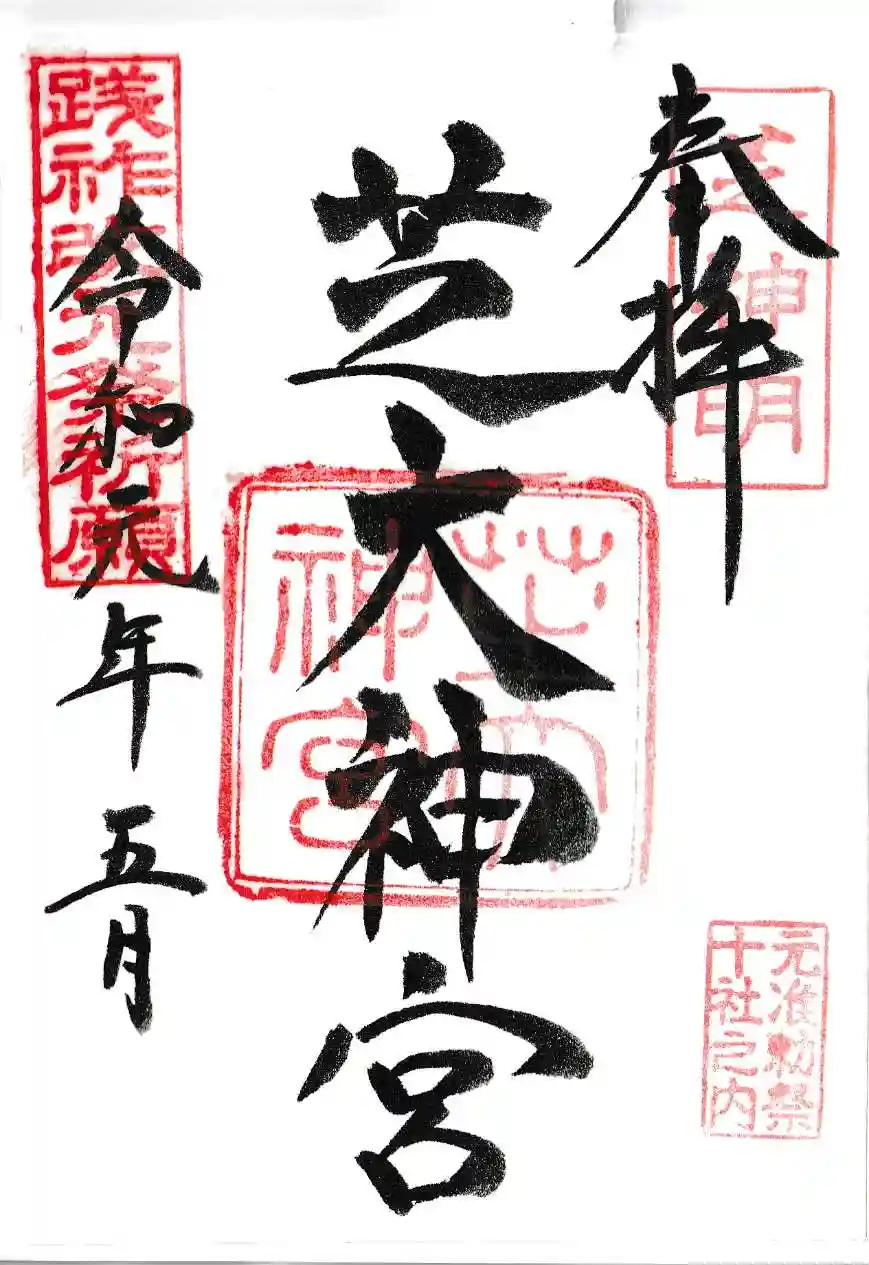 奉拝
芝神明
芝大神宮
芝大神宮
令和元年五月
践祚改元奉祈願
元准勅祭
十社之内